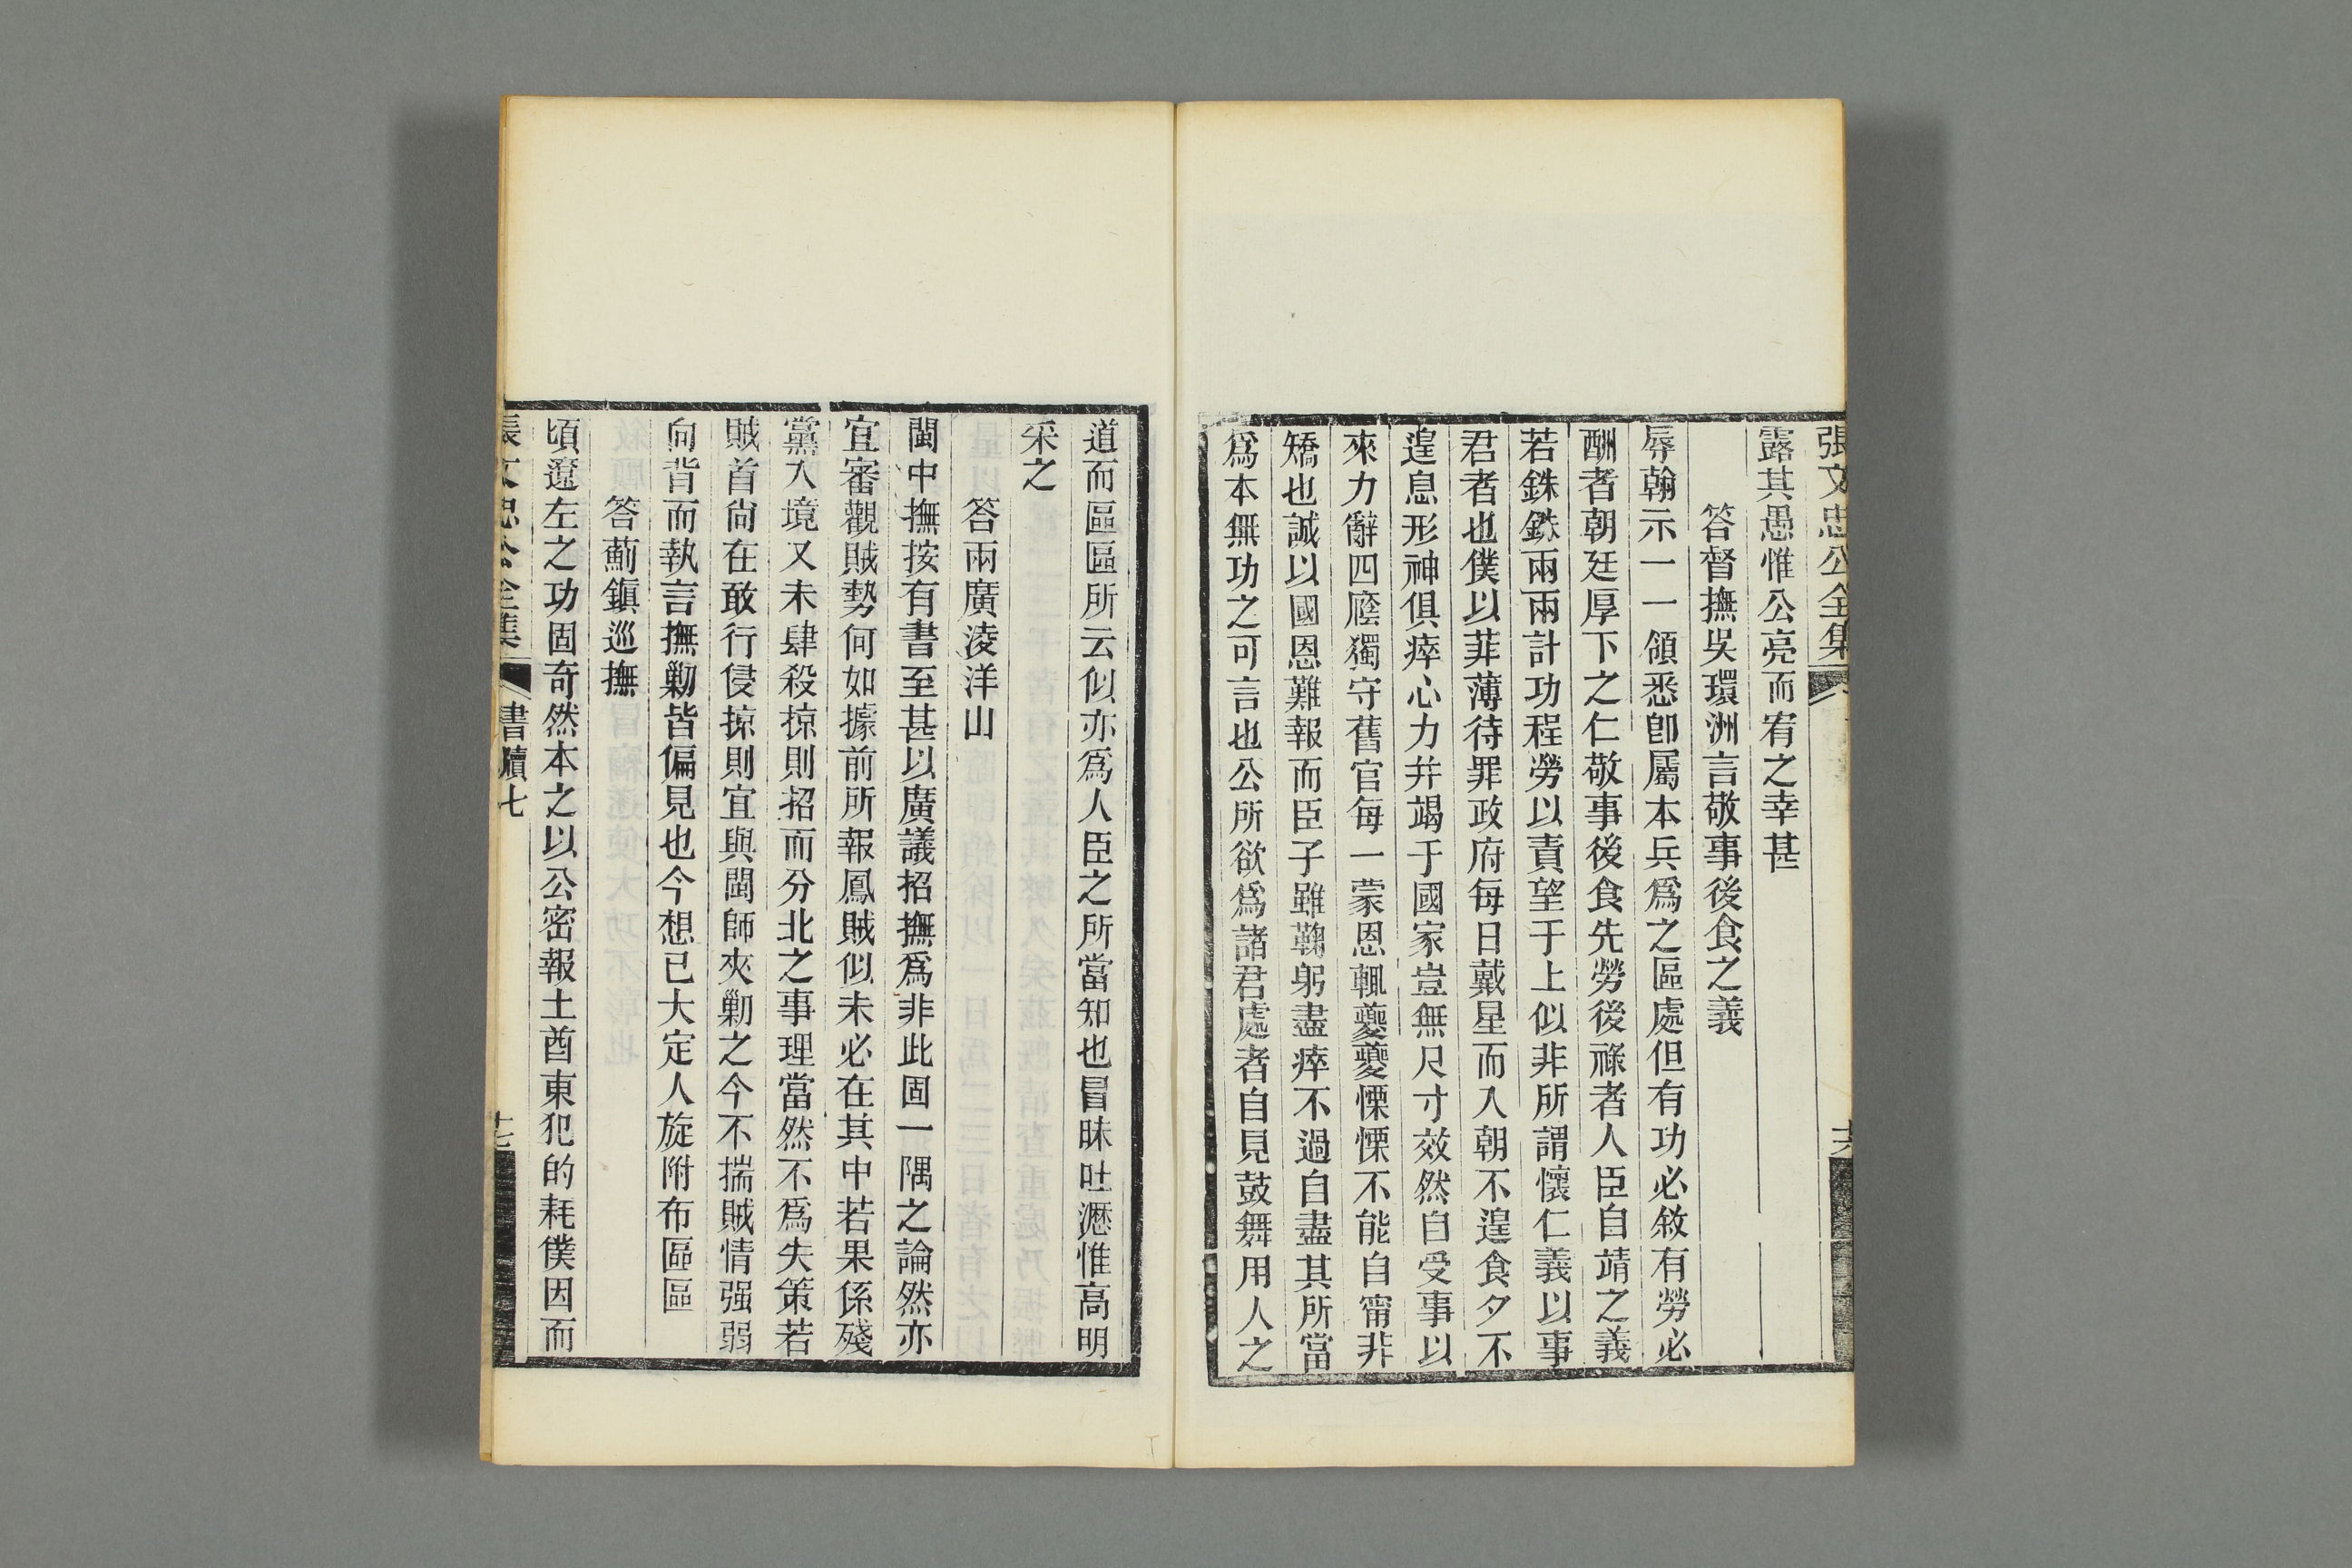 張文忠公全集
十六
露其愚惟公亮而宥之幸甚
答督撫吳環洲言敬事後食之義
辱翰示一一領悉卽屬本兵爲之區處但有功必敘有勞必
酬者朝廷厚下之仁敬事後食先勞後祿者人臣自靖之義
若銖銖兩兩計功程勞以責望于上似非所謂懷仁義以事
君者也僕以菲薄待罪政府每日戴星而入朝不遑食夕不
遑息形神俱瘁心力并竭于國家豈無尺寸效然自受事以
來力辭四廕獨守舊官每一蒙恩輒夔夔慄慄不能自甯非
矯也誠以國恩難報而臣子雖鞠躬盡瘁不過自盡其所當
爲本無功之可言也公所欲爲諸君處者自見鼓舞用人之
道而區區所云似亦爲人臣之所當知也冒昧吐瀝惟高明
采之
答兩廣淩洋山
閩中撫按有書至甚以廣議招撫爲非此固一隅之論然亦
宜審觀賊勢何如據前所報鳳賊似未必在其中若果係殘
黨入境又未肆殺掠則招而分北之事理當然不爲失策若
賊首尙在敢行侵掠則宜與閩師夾勦之今不揣賊情强弱
向背而執言撫勦皆偏見也今想已大定人旋附布區區
答薊鎭巡撫
頃遼左之功固奇然本之以公密報土酋東犯的耗僕因而
張文忠公全集
書牘七
十七